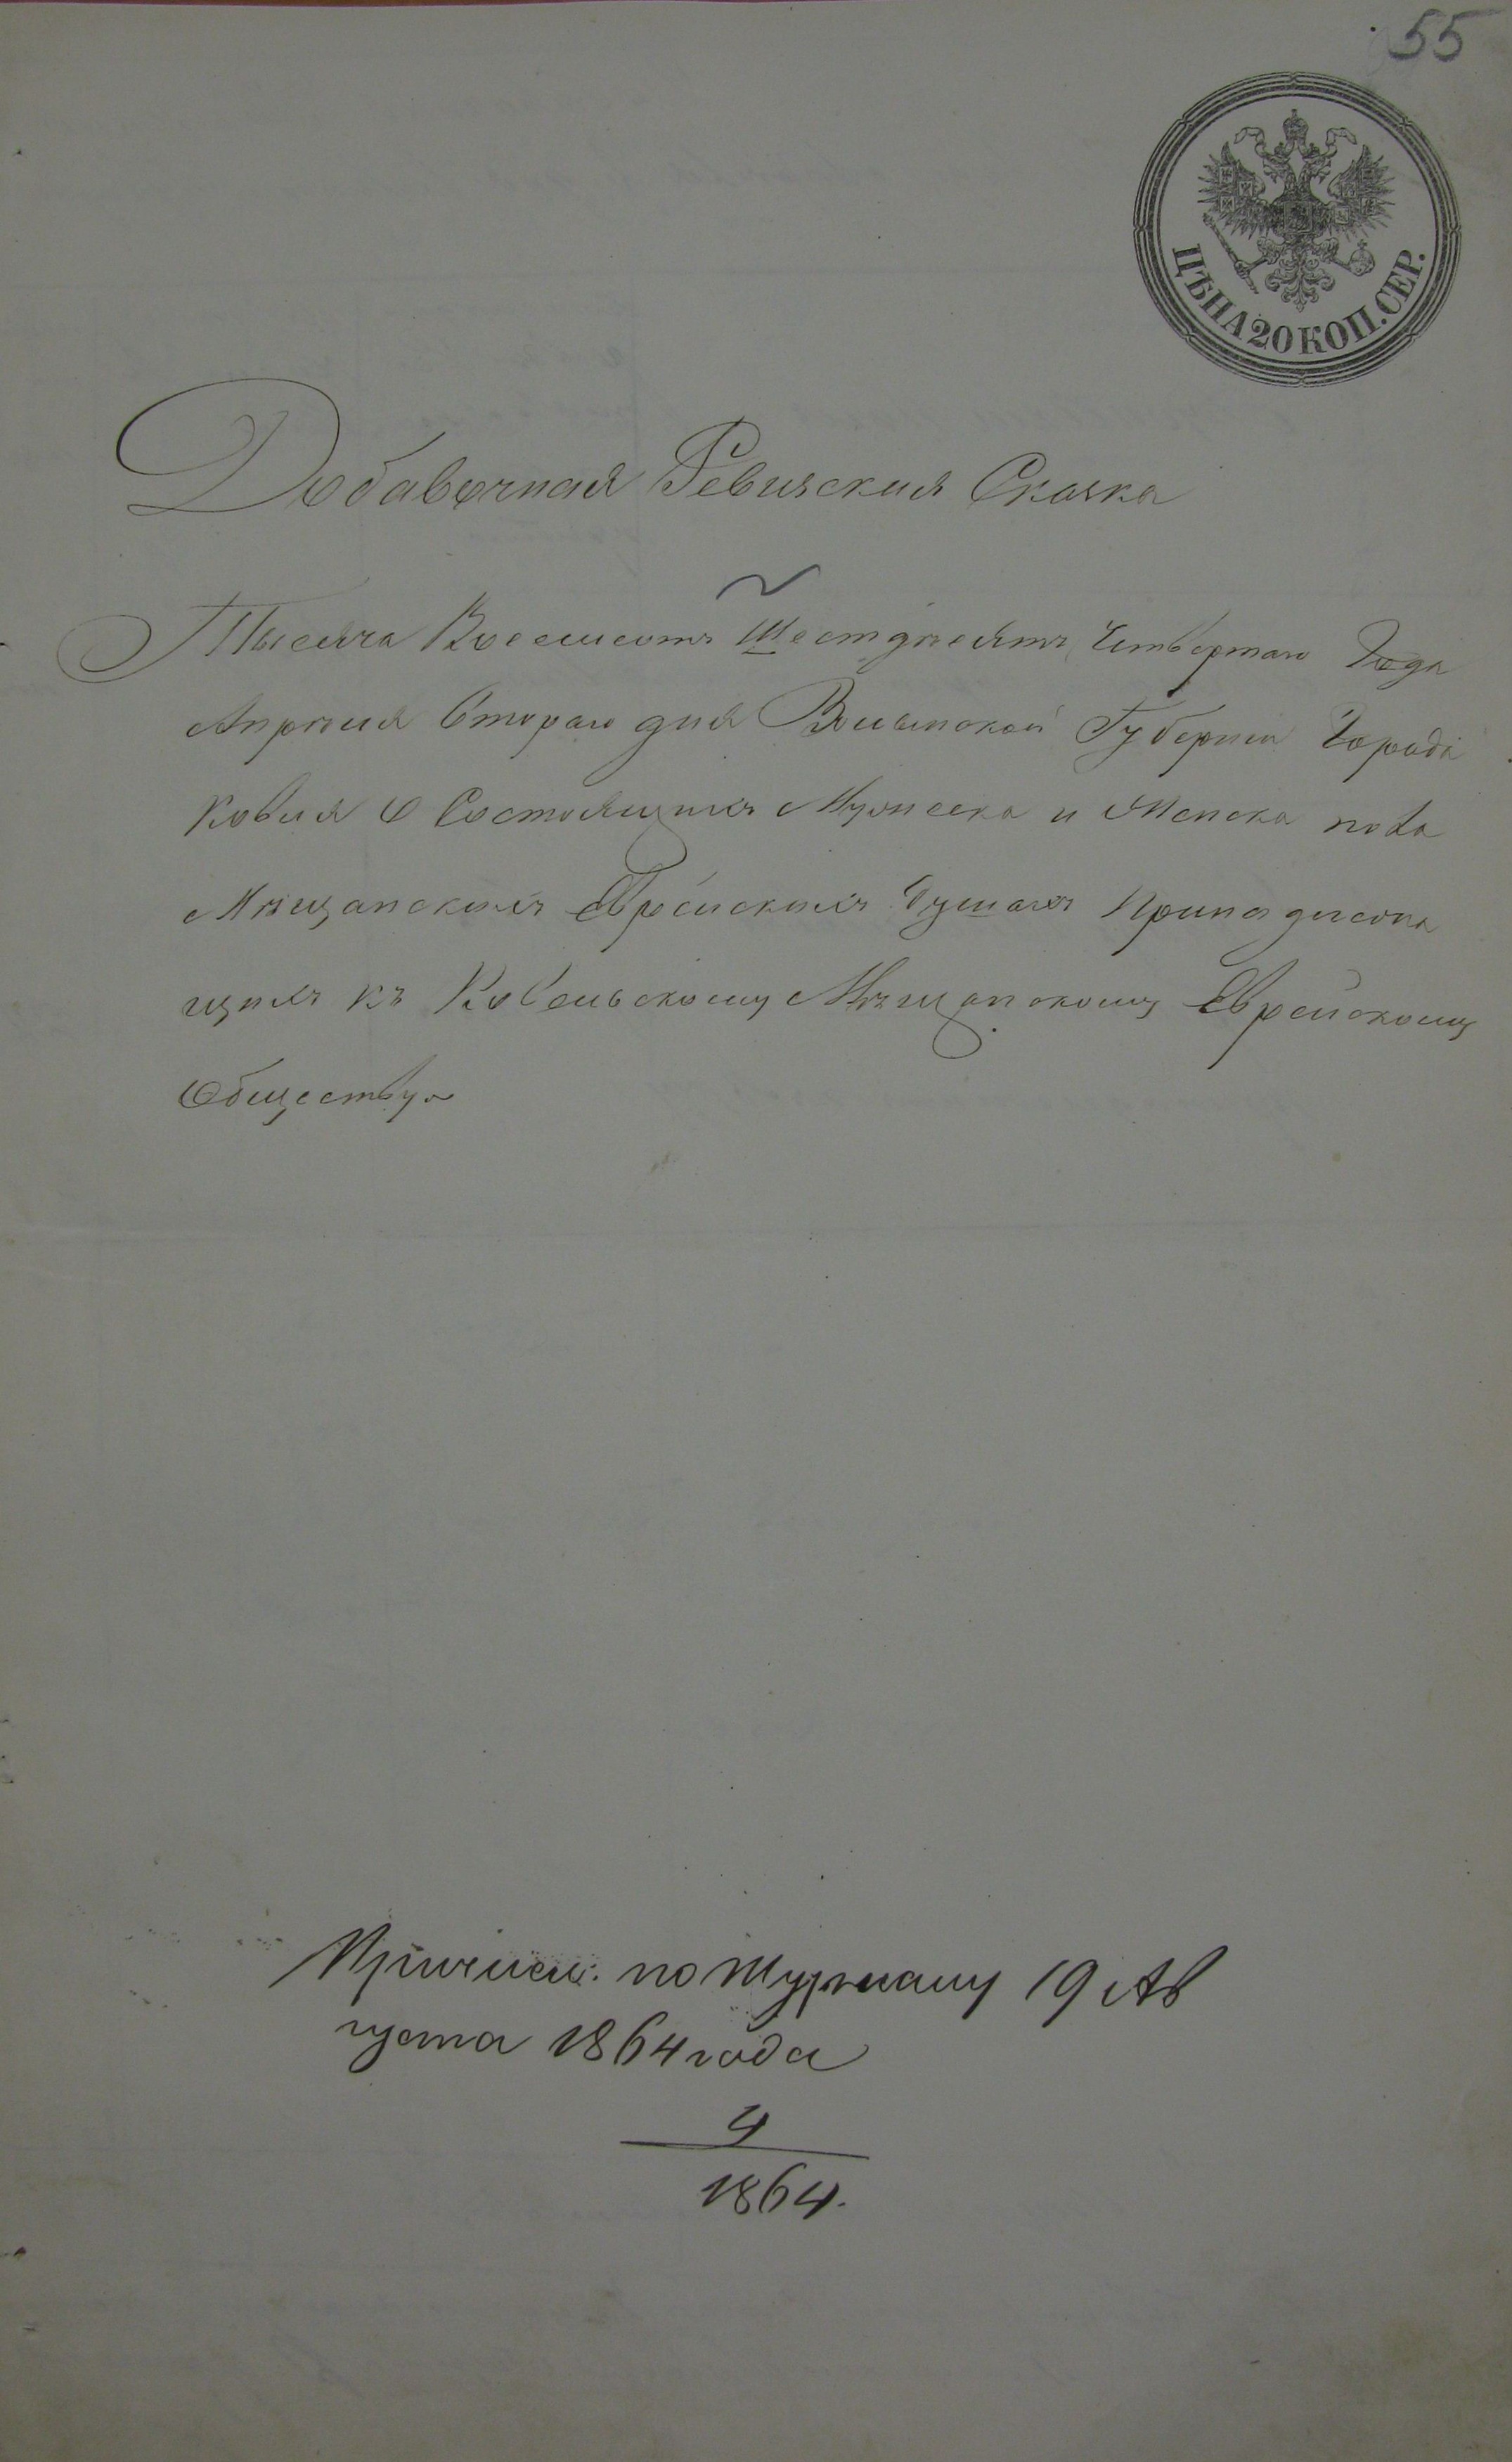 55
ЦѢНА 20 КОП. СЕР.
Добавочная Ревизския Сказка
Тысяча Восемсотъ Шестдѣсятъ Четвертаго Года
Апрѣля Втораго дня Волынской Губерніи Города
Ковля О Состоящихъ Мужеска и Женска пола
Мѣщанскихъ Еврейскихъ Душахъ Принадлежа
щихъ къ Ковельскому Мѣщанскому Еврейскому
Обществу
Причисл. по Журналу 19 Ав
густа 1864 года
4
1864.